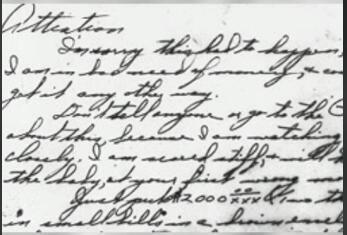 Attention
I'm sorry this had to happen,
I am in bad need of money, & co
get it any other way.
Don't tell anyone or go to the
about this, because I am watching
closely. I am scared stiff, & will
the baby, at your first wrong
Just put $2,000 00/xxx
in small bills in a brown